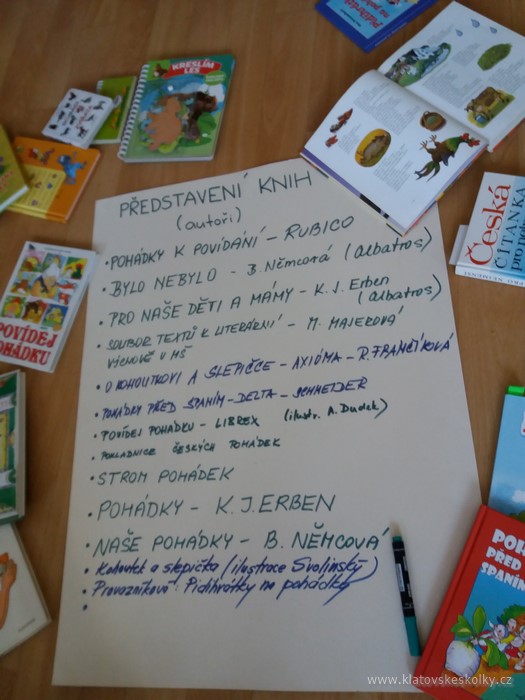 Pidihrátky
na pohádky
KRESLÍM
LES
PŘEDSTAVENÍ KNIH
(autoři)
• POHÁDKY K POVÍDÁNÍ – RUBICO
• BYLO NEBYLO – B. Němcová (Albatros)
• PRO NAŠE DĚTI A MÁMY – K. J. Erben
(Albatros)
• SOUBOR TEXTŮ K LITERÁRNÍ – M. MAJEROVÁ
VÝCHOVĚ V MŠ
• O KOHOUTKOVI A SLEPIČCE – AXIÓMA – R. FRANČÍKOVÁ
• POHÁDKY PŘED SPANÍM – DELTA – SCHNEIDER
• POVÍDEJ POHÁDKU – LIBREX (ilustr. A. Dudek)
• POKLADNICE ČESKÝCH POHÁDEK
• STROM POHÁDEK
• POHÁDKY – K. J. ERBEN
• NAŠE POHÁDKY – B. NĚMCOVÁ
• Kohoutek a slepička (ilustrace Svolinský)
• Provazníková: Pidihrátky na pohádky
•
Česká
ČÍTANKA
PRO NEJMENŠÍ
POVÍDEJ
POHÁDKU
POH
PŘED
SPANÍM
www.klatovskeskolky.cz